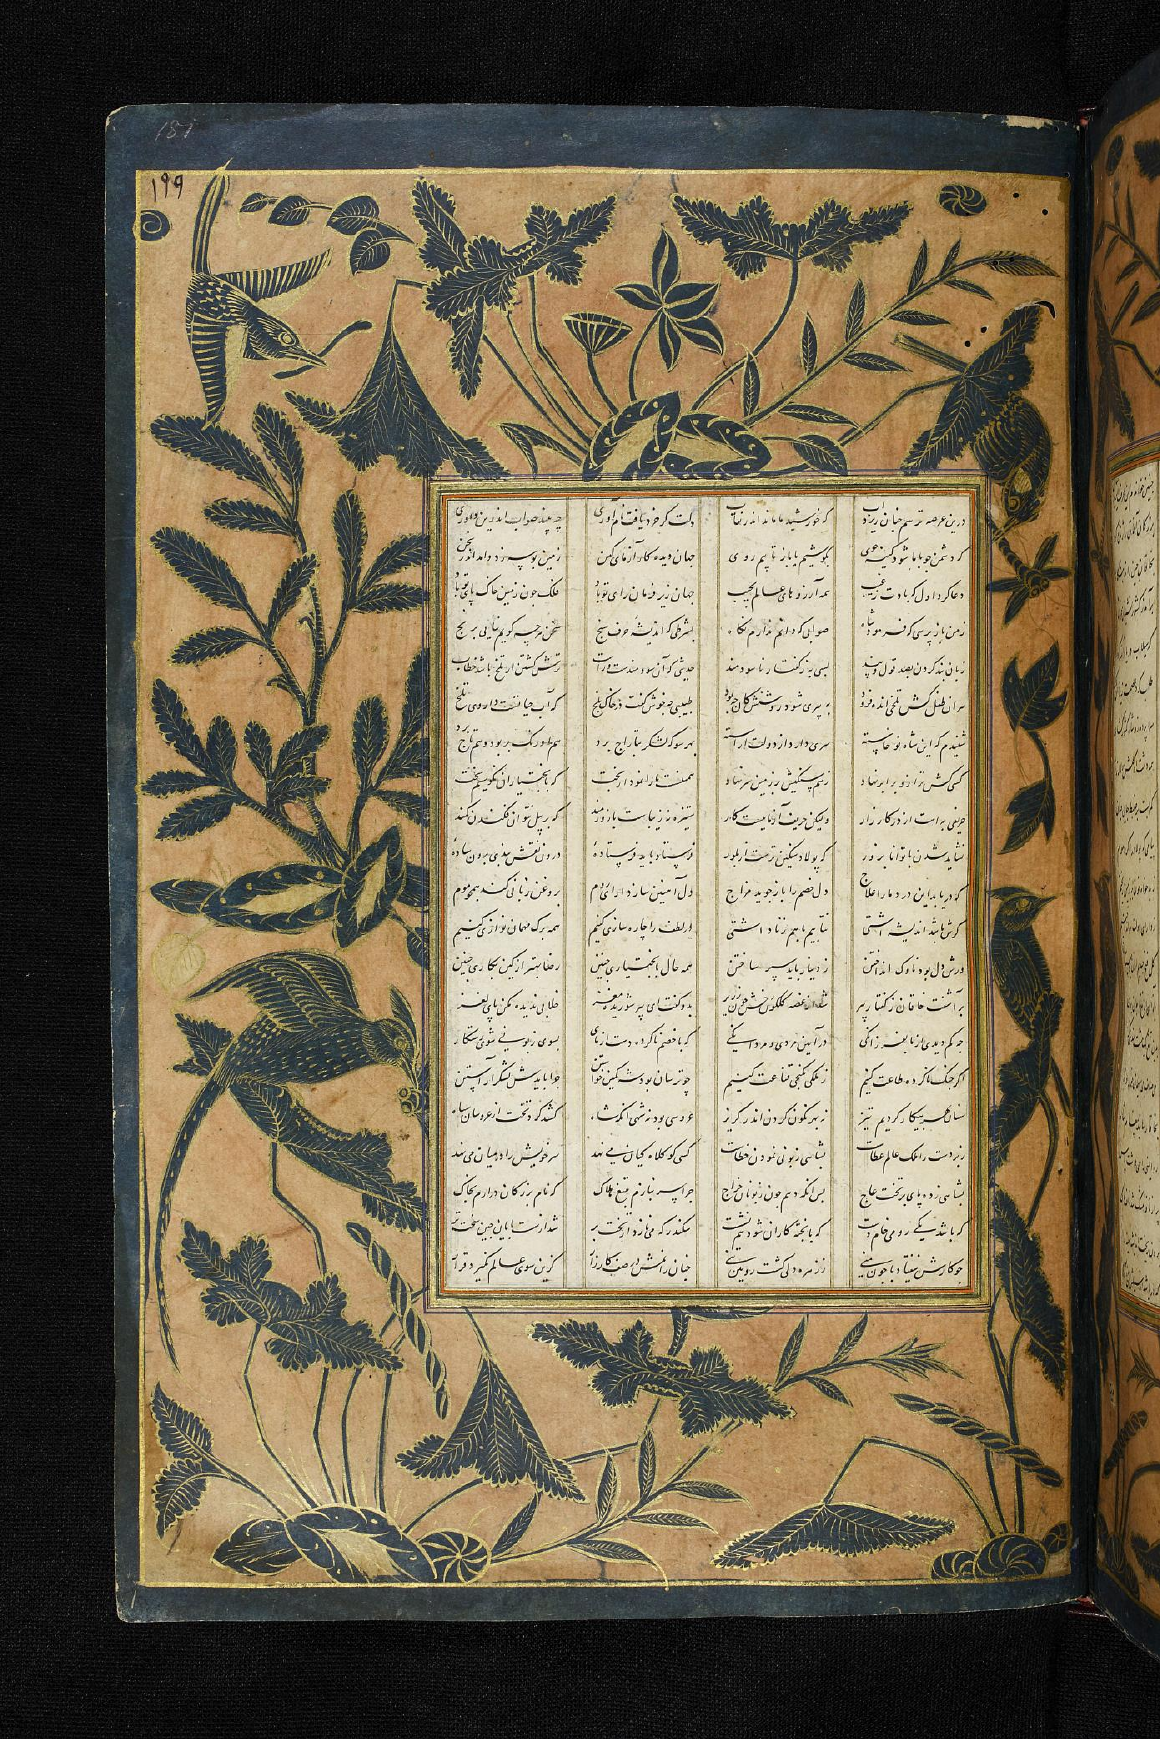 ۱۹۹
درین عرصه ترسم چنان ریزد آب که خورشید ما ماند اندر نقاب دلت گر خرد یافت نام آوری چه بیند صواب اندرین داوری
که دشمن چو با ما شود کینه جوی بکوشیم یا باز تابیم روی جهان دیده کارآزمای کهن زمین بوسه زد داد اندر سخن
دعا کرد اول که بادت ز غیب همه آرزوهای عالم بجیب جهان زیر فرمان رای تو باد فلک چون زمین خاک پای تو باد
ز من باز پرسی که فرمود شاه صوابی که دانم ندارم نگاه بشرطی که اندیشه حرف سنج سخن هرچه گویم نیابی برنج
زبان بند کردن بصد قول و پند بسی به ز گفتار ناسودمند حدیثی که آن سودمندست و راست ترش گشتن از تلخ باشد خطاست
مر آن طفل کش تلخی اندوه فزود به پیری شود روشنش کان چه بود طبیبی چه خوش گفت در خاک بلخ که آب حیاتست داروی تلخ
شنیدم که این شاه نوخاسته سری دارد از دولت آراسته بهر سو که لشکر بتاراج برد هم اورنگ بربود و هم تاج برد
کسی کش ترازو برابر نهاد ز هم سنگیش بر زمین سر نهاد را نمودار بخت که با بختیاران نکوشیم سخت
حریفی بداست از در کارزار ولیکن حریف آزماییست کار ستیزه نه زیباست با زورمند که بر پیل نتوان فکندن کمند
نشاید شدن با توانا بزور که پولاد سنگین ترست از بلور فرستاد باید فرستاده درون نقش بندی برون ساده
که دریابد این درد ما را علاج دل خصم را بازجوید مزاج دل آهنین سازد بروغن زبانی کند موم
گرش باشد اندیشه آشتی نتابیم ما هم ز ناداشتی در لطف را چاره سازی کنیم همه برگ مهمان نوازی کنیم
ورش دل بود ناوک انداختن ز دیبا نباید سپر ساختن همه حال با بختیاری چنین رضا بهتر از کین گزاری چنین
برآشفت خاقان ز گفتار پیر شد از غصه گلگون رخش چون زریر بدو گفت ای پیر شوریده مغز خلابی ندیده مکن پای لغز
چه کم دیدی از ما بفرزانگی در آیین مردی و مردانگی که با خصم ناکرده دست بسوی زبونی شوی
اگر جنگ ناکرده طاعت کنیم ز ملکی بکنجی قناعت کنیم چو ترسان بود شه ز کین خواستن چرا بایدش لشکر آراستن
سنان گر به پیکار کردیم تیز نه بهر نگون کردن اندر گریز عروسی بود نه شهی آنک شاه کشد گرد تخت از عروسان سپاه
زبردست را ملک عالم عطاست بشاهی زبونی نمودن خطاست کسی کو کلاه کیان می نهد سر خویش را در میان می نهد
بشاهی زده پای بر تخت عاج پس آنگه دهم چون زبونان خراج چرا سر نبازم بتیغ هلاک که نام بزرگان درآرم بخاک
که باشد یکی رومی خام دست که با پخته کاران شود هم نشست سکندر که می نازد از بخت شد از شاهان چین
چو کارش بیفتاد با چون منی مرده دل گشت رویین تنی چنان رانمش در صف کارزار کزین سوی عالم نگیرد قرار